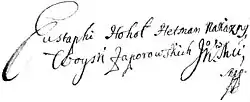 Eustaphi Hohol Hetman Nakazny
Woyski Zaporowskich